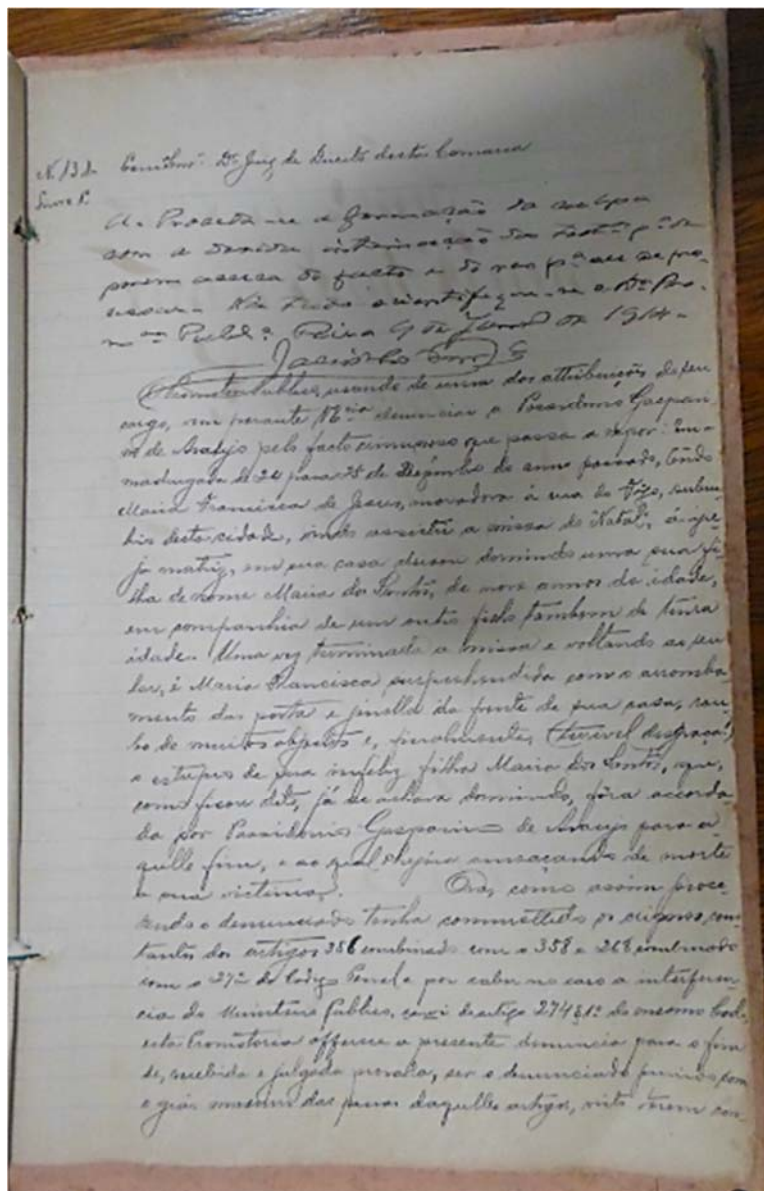 N. 132. Exmo Snr. Dr. Juiz de Direito desta Comarca
Livro 1º
A. Proceda-se a formação da culpa
com a devida intimação das test.as p.a de
porem acerca do facto e do reo p.a se ver pro
cessar. De tudo scientifique-se o Dr. Pro
Publ.o 9 de Junho de 1914.
O Promotor Publico, usando de uma das attribuições de seu
cargo, vem perante denunciar a Possidonio Gaspari
no de Araujo pelo facto criminoso que passa a expor: Em a
madrugada de 24 para 25 de Dezembro do anno passado, tendo
Maria Francisca de Jesus, moradora á rua do Fogo, subur
bio desta cidade, vindo assistir a missa do Natal, á igre
ja matriz, em sua casa deixou dormindo uma sua fi
lha de nome Maria dos Santos, de nove annos de idade,
em companhia de um outro filho tambem de tenra
idade. Uma vez terminada a missa e voltando ao seu
lar, é Maria Francisca surprehendida com o arromba
mento das porta e janella da frente de sua casa, rou
bo de muitos objectos e, finalmente, (terrivel desgraça!)
o estupro de sua infeliz filha Maria dos Santos, que,
como ficou dito, já se achava dormindo, fôra accorda
da por Possidonio Gasparino de Araujo para a
quelle fim, e ao qual ameaçando de morte
a sua victima. Ora, como assim proce
dendo o denunciado tenha commettido os crimes cons
tantes dos artigos 356 combinado com o 358 e 268 combinado
com o 272 do Codigo Penal e por caber no caso a interferen
cia do Ministerio Publico, artigo 274 § 1º do mesmo Cod.,
esta Promotoria offerece a presente denuncia para o fim
de, recebida e julgada provada, ser o denunciado punido com
o gráo maximo das penas daquelles artigos, visto terem con